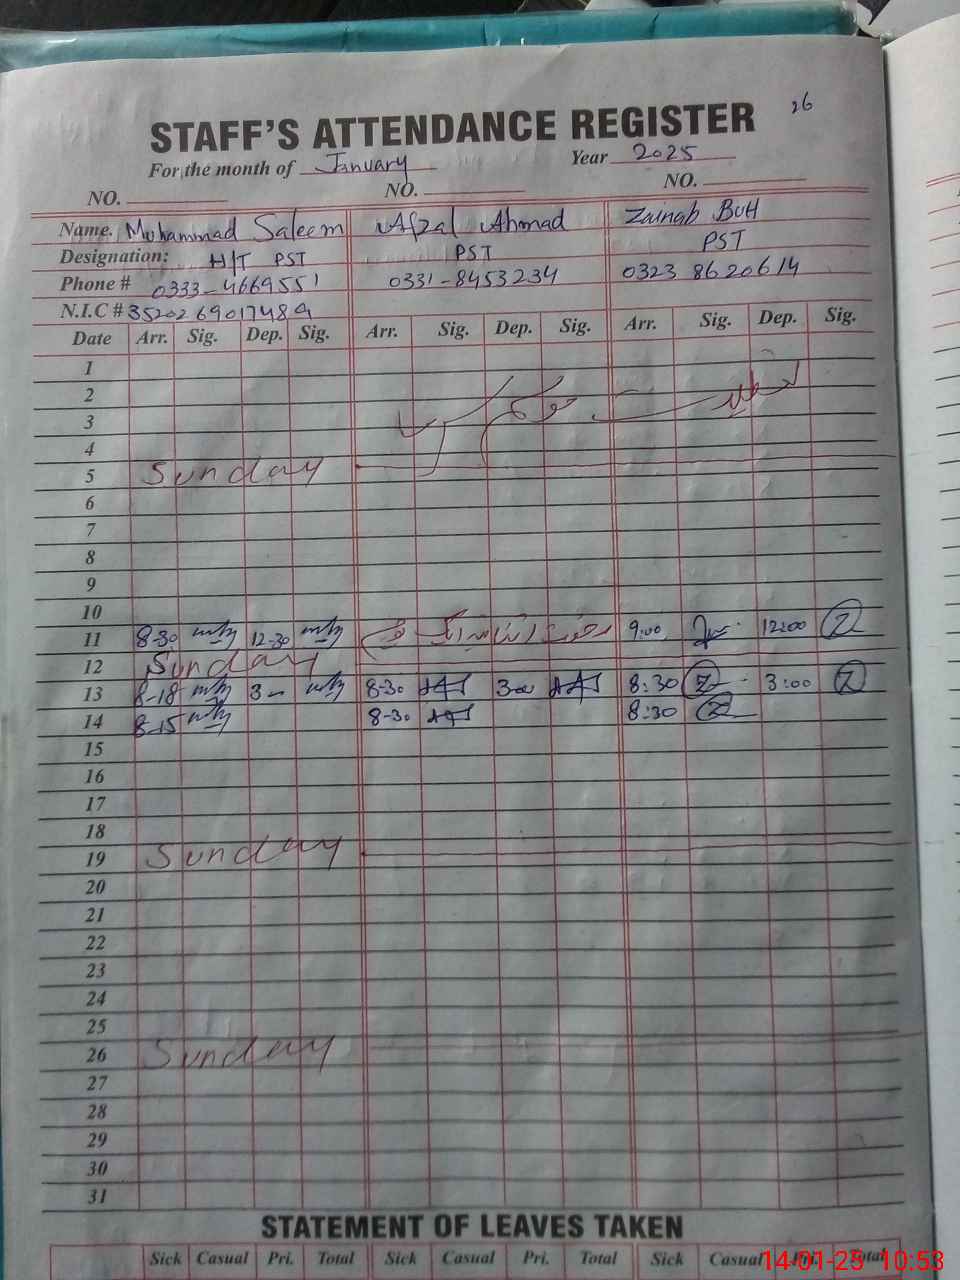 26
STAFF'S ATTENDANCE REGISTER
For the month of January Year 2025
NO. NO. NO.
Name. Muhammad Saleem Afzal Ahmad Zainab Butt
Designation: H/T PST PST PST
Phone # 0333-4669551 0331-8453234 0323 8620614
N.I.C #
Date Arr. Sig. Dep. Sig. Arr. Sig. Dep. Sig. Arr. Sig. Dep. Sig.
1
2
3
4
5 Sunday
6
7
8
9
10
11 8-30 12-30 9:00 12:00
12 Sunday
13 8-18 8-30 8:30 3:00
14 8-15 8-30 8:30
15
16
17
18
19 Sunday
20
21
22
23
24
25
26 Sunday
27
28
29
30
31
STATEMENT OF LEAVES TAKEN
Sick Casual Pri. Total Sick Casual Pri. Total Sick Casual Pri. Total
14-01-25 10:53